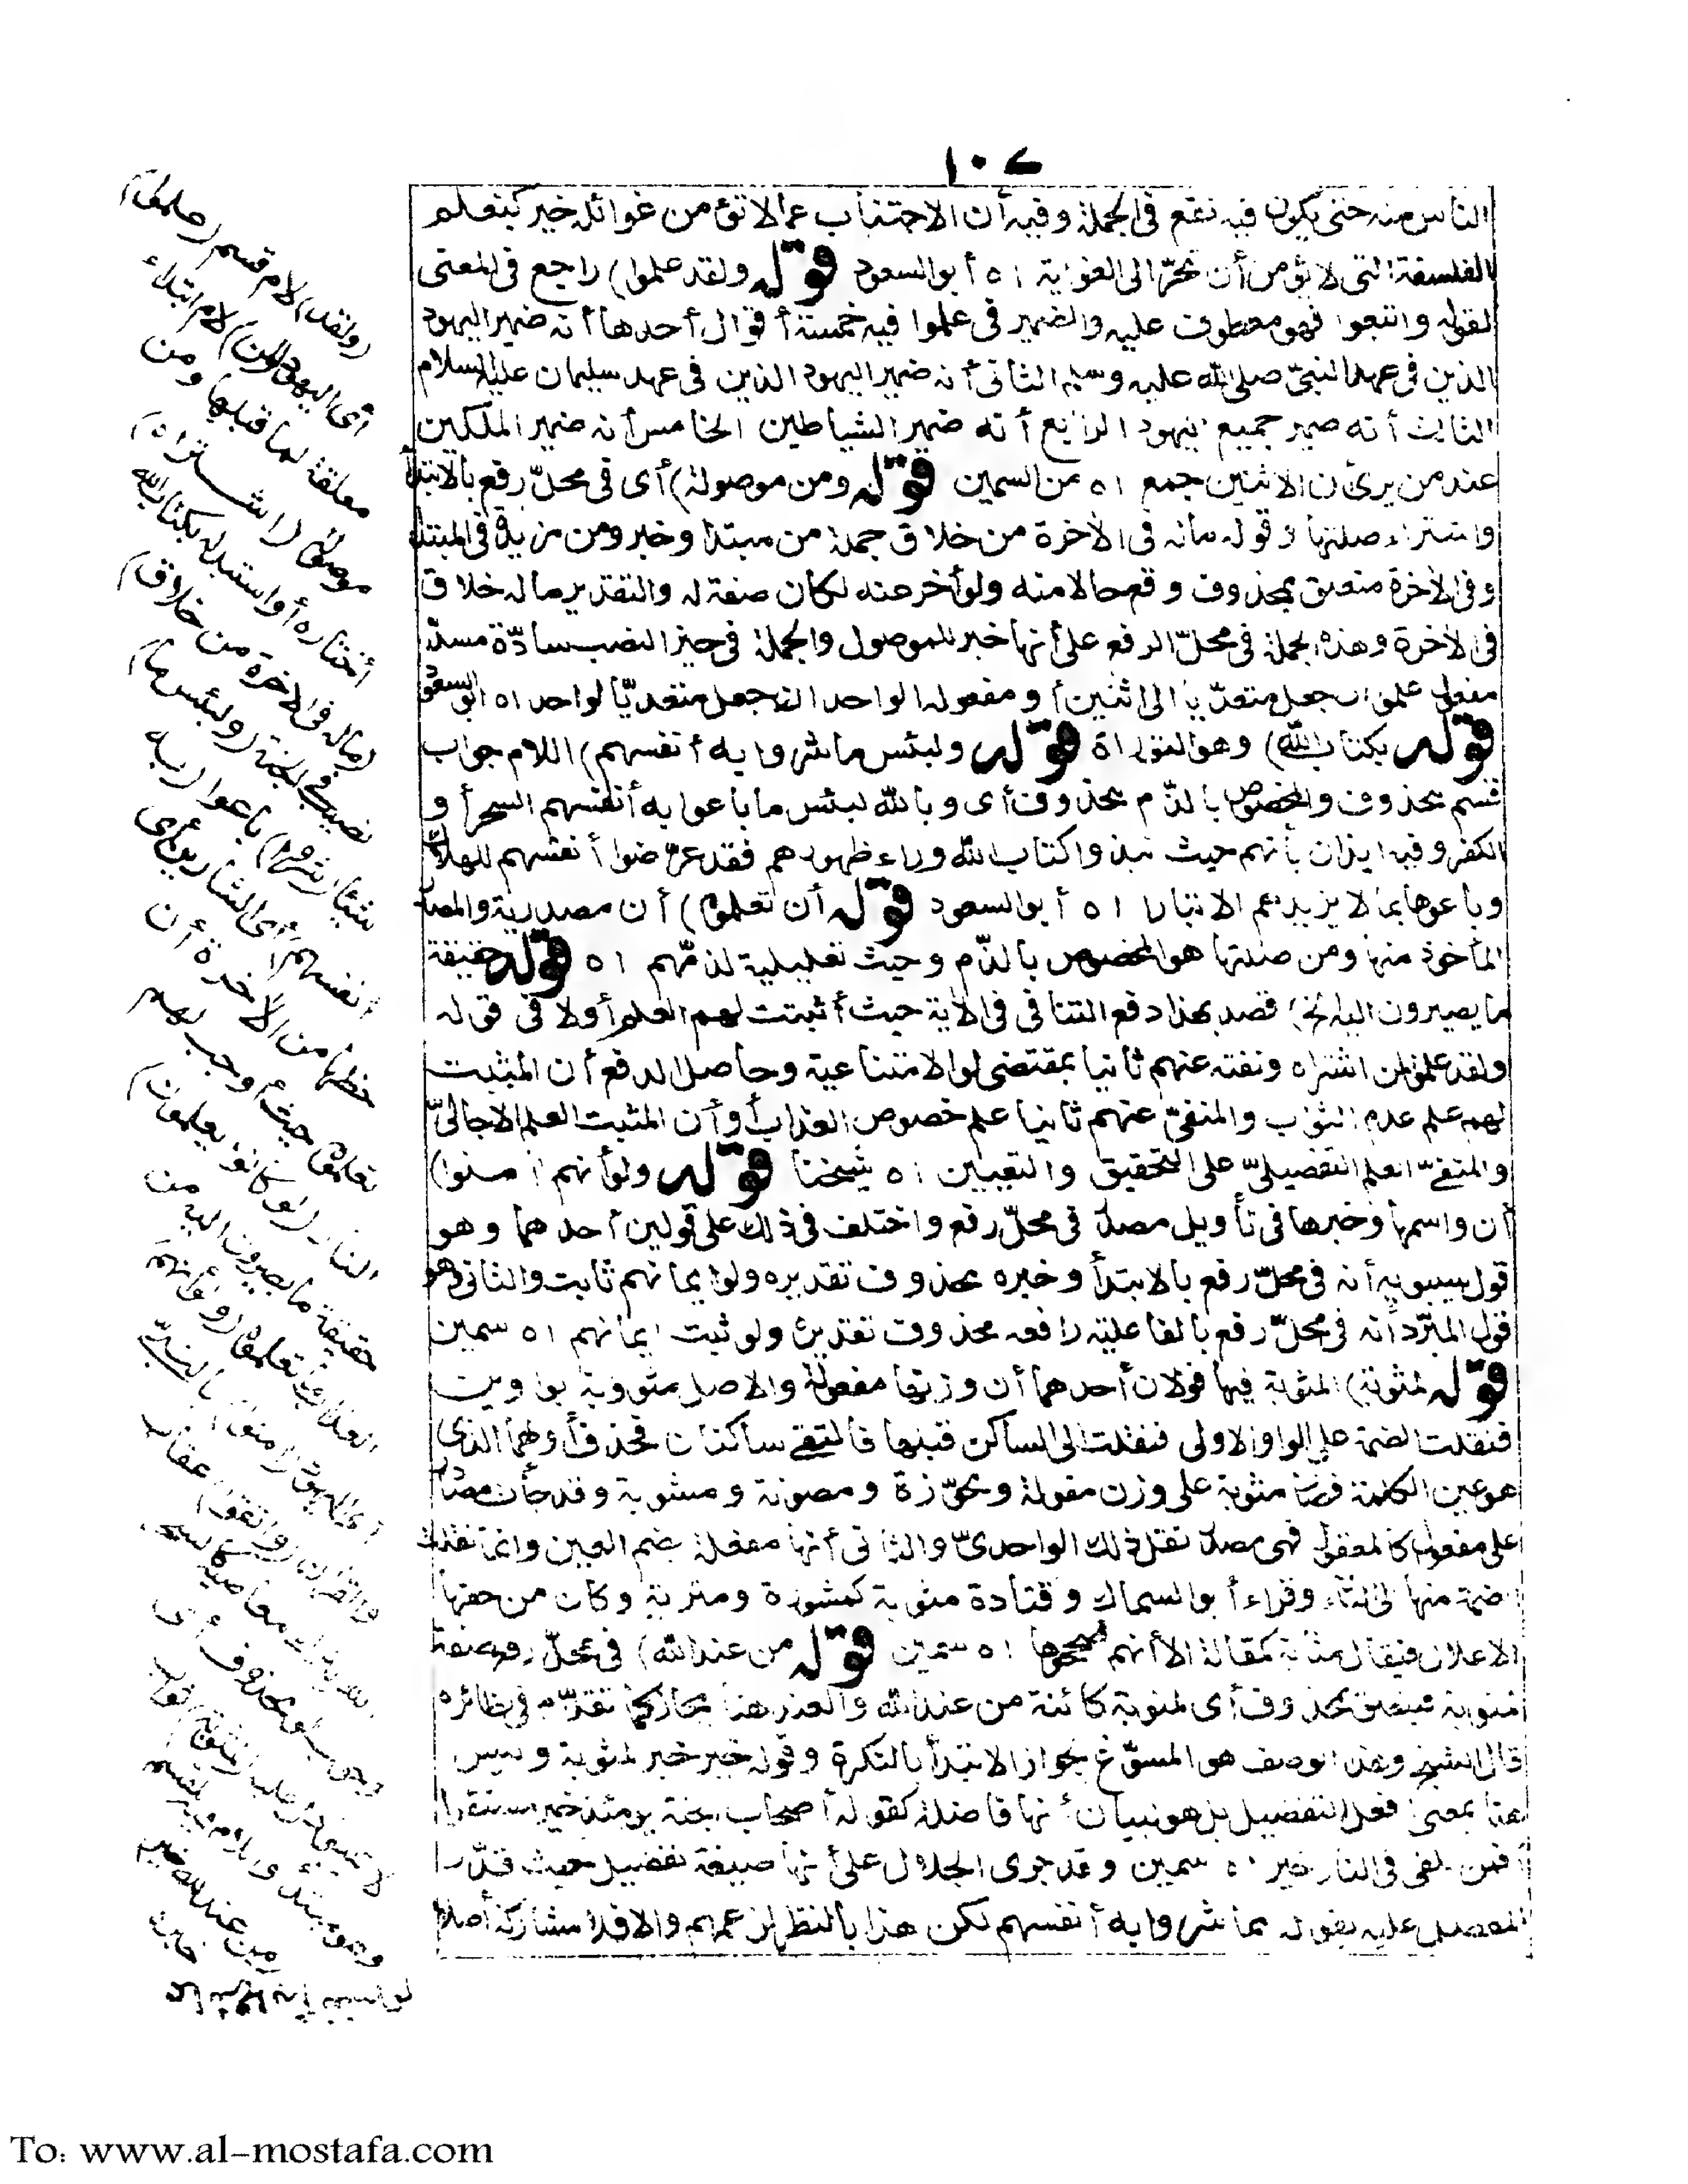 ١٠٤
الناس منه حتى يكون فيه نفع في الجملة وفيه أن الاجتناب عما لا تؤمن غوائله خير كتعلم
الفلسفة التي لا يؤمن أن تجرّ الى الغواية اه أبو السعود قوله ولقد علموا) راجع في المعنى
لقوله واتبعوا فهو معطوف عليه والضمير في علموا فيه خمسة أقوال أحدها أنه ضمير اليهود
الذين في عهد النبيّ صلى الله عليه وسلم الثاني أنه ضمير اليهود الذين في عهد سليمان عليه السلام
الثالث أنه ضمير جميع اليهود الرابع أنه ضمير الشياطين الخامس أنه ضمير الملكين
عند من يرى أن الاثنين جمع اه من السمين قوله ومن موصولة) أي في محلّ رفع بالابتدأ
واشتراه صلتها وقوله ماله في الآخرة من خلاق جملة من مبتدا وخبر ومن مزيدة في المبتدا
وفي الآخرة متعلق بمحذوف وقع حالا منه ولو أخر عنه لكان صفة له والتقدير ماله خلاق
في الآخرة وهذه الجملة في محلّ الرفع على أنها خبر للموصول والجملة في حيز النصب سادّة مسدّ
مفعولي علموا ان جعل متعدّيا الى اثنين أو مفعوله الواحد ان جعل متعديّا لواحد اه أبو السعود
قوله بكتاب الله) وهو التوراة قوله ولبئس ما شروا به أنفسهم) اللام جواب
قسم محذوف والمخصوص بالذّم محذوف أي وبالله لبئس ما باعوا به أنفسهم السحر أو
الكفر وفيه ايذان بأنهم حيث نبذوا كتاب الله وراء ظهورهم فقد عرّضوا أنفسهم للهلاك
وباعوها بما لا يزيدهم الا تبارا اه أبو السعود قوله أن تعلموه) أن مصدرية والمصدر
المأخوذ منها ومن صلتها هو المخصوص بالذّم وحيث تعليلية لذمّهم اه قوله حقيقة
ما يصيرون اليه الخ) قصد بهذا دفع التنافي في الآية حيث أثبتت لهم العلم أولا في قوله
ولقد علموا لمن اشتراه ونفته عنهم ثانيا بمقتضى لو الامتناعية وحاصل الدفع أن المثبت
لهم علم عدم الثواب والمنفيّ عنهم ثانيا علم خصوص العذاب أو أن المثبت العلم الاجماليّ
والمنفيّ العلم التفضيليّ على التحقيق والتعيين اه شيخنا قوله ولو أنهم امنوا)
أن واسمها وخبرها في تأويل مصدر في محلّ رفع واختلف في ذلك على قولين أحدهما وهو
قول سيبويه أنه في محلّ رفع بالابتدأ وخبره محذوف تقديره ولو ايمانهم ثابت والثاني وهو
قول المبرّد أنه في محلّ رفع بالفاعلية رافعه محذوف تقديره ولو ثبت ايمانهم اه سمين
قوله لمثوبة) المثوبة فيها قولان أحدهما أن وزنها مفعولة والاصل مثووبة بواوين
فنقلت الضمة على الواو الاولى فنقلت الى الساكن قبلها فالتقى ساكنان فحذف أولهما الذي
هو عين الكلمة فصار مثوبة على وزن مفولة ومحوّزة ومصونة ومشوبة وقد جأت مصادر
على مفعول كالمعقول فهي مصدر نقل ذلك الواحديّ والثاني أنها مفعلة بضم العين وانما نقلت
الضمة منها الى الثاء وقراء أبو السماك وقتادة مثوبة كمشورة ومتربة وكان من حقها
الاعلال فيقال مثابة كمقالة الا أنهم صححوها اه سمين قوله من عند الله) في محلّ رفع صفة
لمثوبة فيتعلق بمحذوف أي لمثوبة كائنة من عند الله والعندية هنا مجاز كما تقدّم في نظائره
قال الشيخ وهذا الوصف هو المسوّغ لجواز الابتدأ بالنكرة وقوله خير خبر لمثوبة وليس
هنا بمعنى أفعل التفضيل بل هو لبيان أنها فاضلة كقوله أصحاب الجنة يومئذ خير مستقرا
أفمن يلقى في النار خير اه سمين وقد جرى الجلال على أنها صيغة تفضيل حيث قدّر
المفضل عليه بقوله مما شروا به أنفسهم لكن هذا بالنظر لزعمهم والا فلا مشاركة أصلا
(ولقد) لام قسم (علموا)
أي اليهود (لمن) لام ابتداء
معلقة لما قبلها ومن
موصولة (اشتراه)
اختاره أو استبدله بكتاب الله
(ماله في الآخرة من خلاق)
نصيب في الجنة (ولبئس ما)
شيئا (شروا) باعوا (به
أنفسهم) أي الشارين أي
حظها من الآخرة أن
تعلموه حيث أوجب لهم
النار (لو كانوا يعلمون)
حقيقة ما يصيرون اليه من
العذاب ما تعلموه (ولو أنهم)
أي اليهود (امنوا) بالنبيّ
والقرآن (واتقوا) عقاب
الله بترك معاصيه كالسحر
وجواب لو محذوف أي
لأثيبوا دل عليه (لمثوبة) ثواب
وهو مبتدأ واللام فيه للقسم
(من عند الله خير)
خبره
To: www.al-mostafa.com